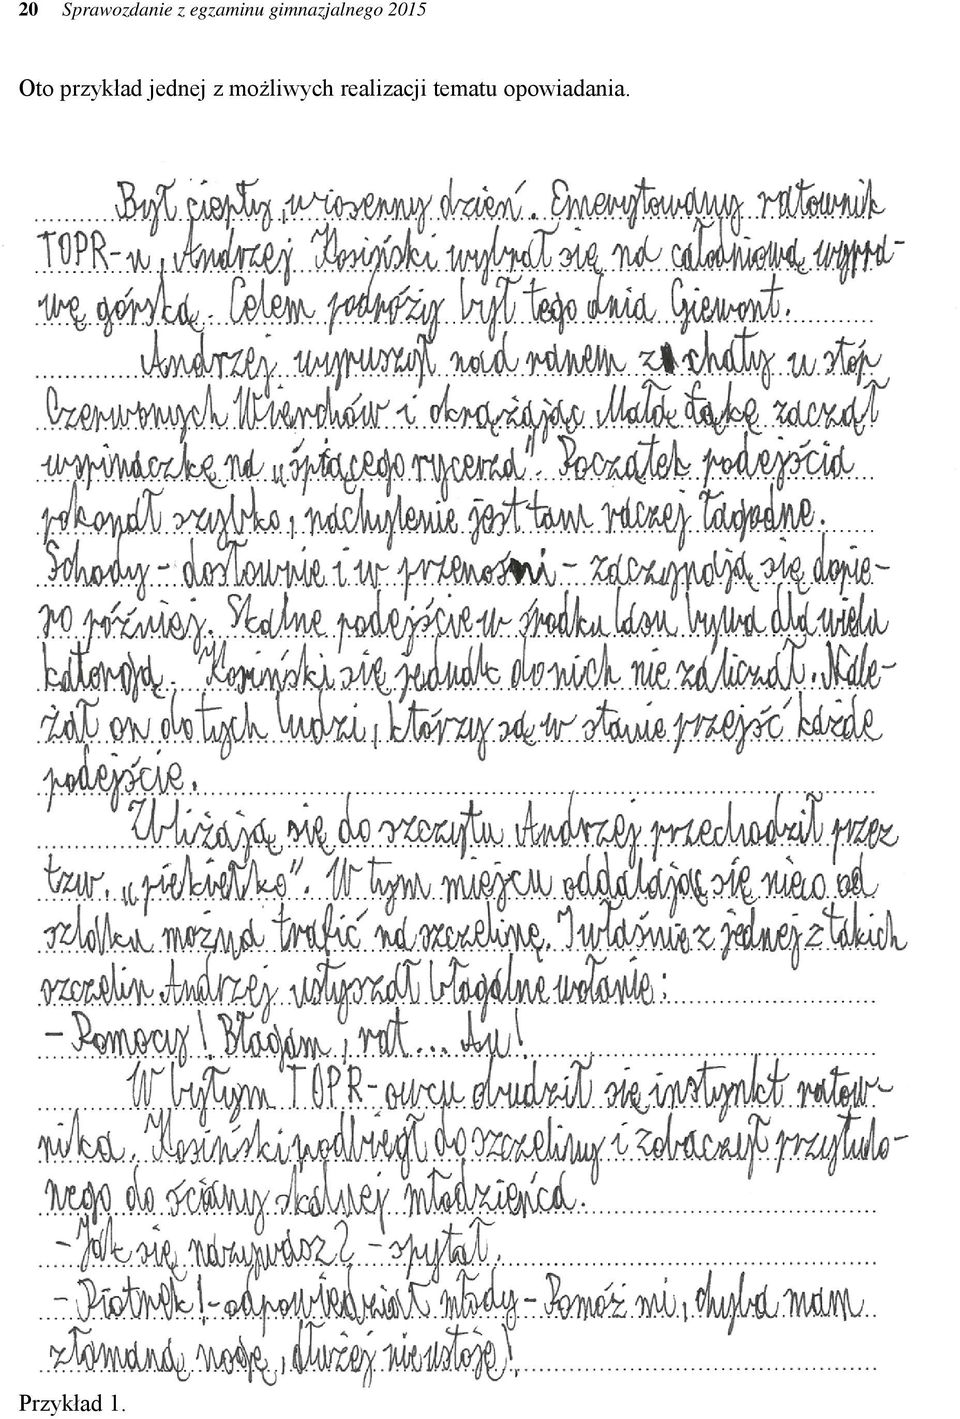 20 Sprawozdanie z egzaminu gimnazjalnego 2015
Oto przykład jednej z możliwych realizacji tematu opowiadania.
Był ciepły, wiosenny dzień. Emerytowany ratownik
TOPR-u, Andrzej Kosiński wybrał się na całodniową wypra-
wę górską. Celem podróży był tego dnia Giewont.
Andrzej wyruszył nad ranem z chaty u stóp
Czerwonych Wierchów i okrążając Małą Łąkę zaczął
wspinaczkę na „śpiącego rycerza". Początek podejścia
pokonał szybko, nachylenie jest tam raczej łagodne.
Schody - dosłownie i w przenośni - zaczynają się dopie-
ro później. Skalne podejście w środku lasu bywa dla wielu
katorgą. Kosiński się jednak do nich nie zaliczał. Nale-
żał on do tych ludzi, którzy są w stanie przejść każde
podejście.
Zbliżając się do szczytu Andrzej przechodził przez
tzw. „piekiełko". W tym miejcu oddalając się nieco od
szlaku można trafić na szczelinę. I właśnie z jednej z takich
szczelin Andrzej usłyszał błagalne wołanie:
- Pomocy! Błagam, rat... Au!
W byłym TOPR-owcu obudził się instynkt ratow-
nika. Kosiński podbiegł do szczeliny i zobaczył przytulo-
nego do ściany skalnej młodzieńca.
- Jak się nazywasz? - spytał.
- Piotrek! - odpowiedział młody - Pomóż mi, chyba mam
złamaną nogę, dłużej nie ustoję!
Przykład 1.